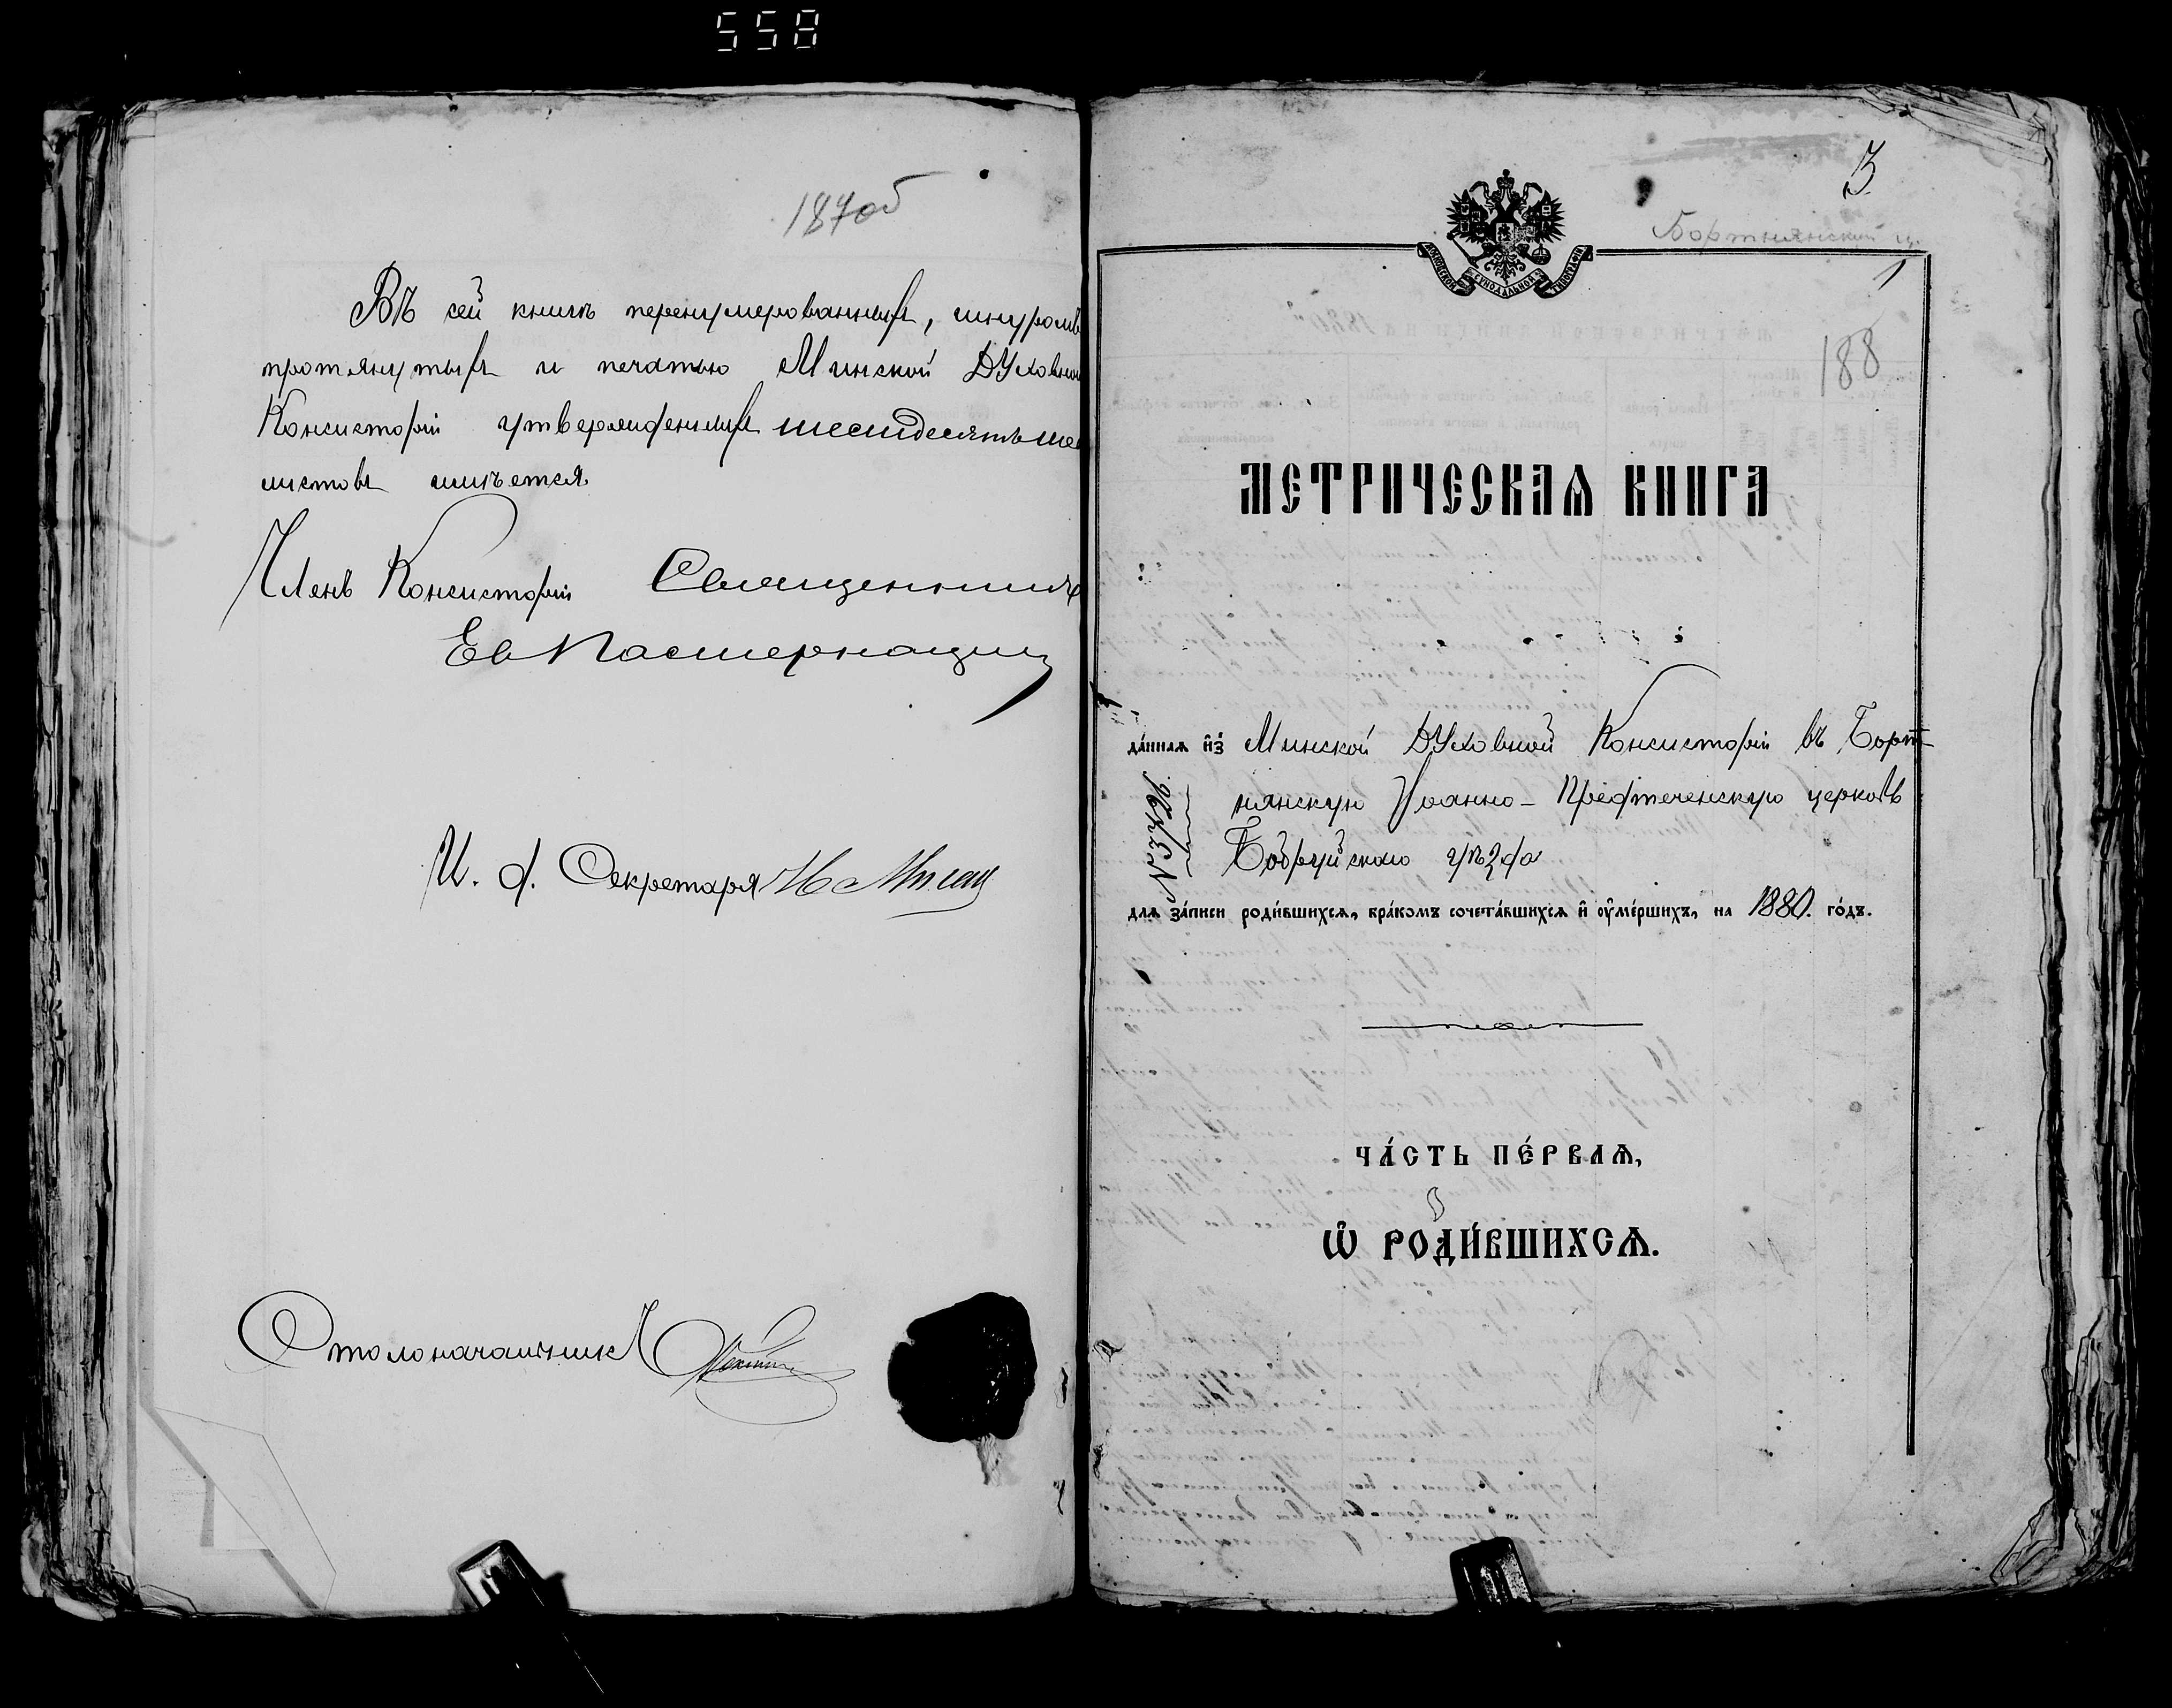 558
187об
Въ сей книгѣ перенумерованныхъ, шнуромъ
протянутыхъ и печатью Минской Духовной
Консисторіи утвержденныхъ шестьдесятъ
листовъ имѣется.
Членъ Консисторіи Священникъ
И. д. Секретаря
Столоначальникъ
3
Бортнянский ц.
МОСКОВСКОЙ СѴНОДАЛЬНОЙ ТИПОГРАФІИ
1
188
МЕТРИЧЕСКАѦ КНИГА
да́ннаѧ и҆з̾ Минской Духовной Консисторіи въ Борт-
нянскую Іоанно-Предтеченскую церковь
Бобруйскаго уѣзда
длѧ за́писи роди́вшихсѧ, бра́комъ сочета́вшихсѧ и҆ ᲂу҆ме́ршихъ, на 1880. го́дъ.
ЧА́СТЬ ПЕ́РВАѦ,
Ѡ҆ РОДИ́ВШИХСѦ.